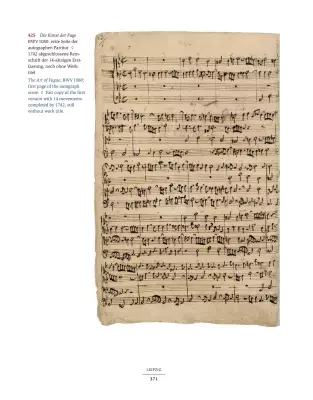 425 Die Kunst der Fuge
BWV 1080: erste Seite der
autographen Partitur ◊
1742 abgeschlossene Rein-
schrift der 14-sätzigen Erst-
fassung, noch ohne Werk-
titel
The Art of Fugue, BWV 1080:
first page of the autograph
score ◊ Fair copy of the first
version with 14 movements
completed by 1742, still
without work title.
LEIPZIG
371